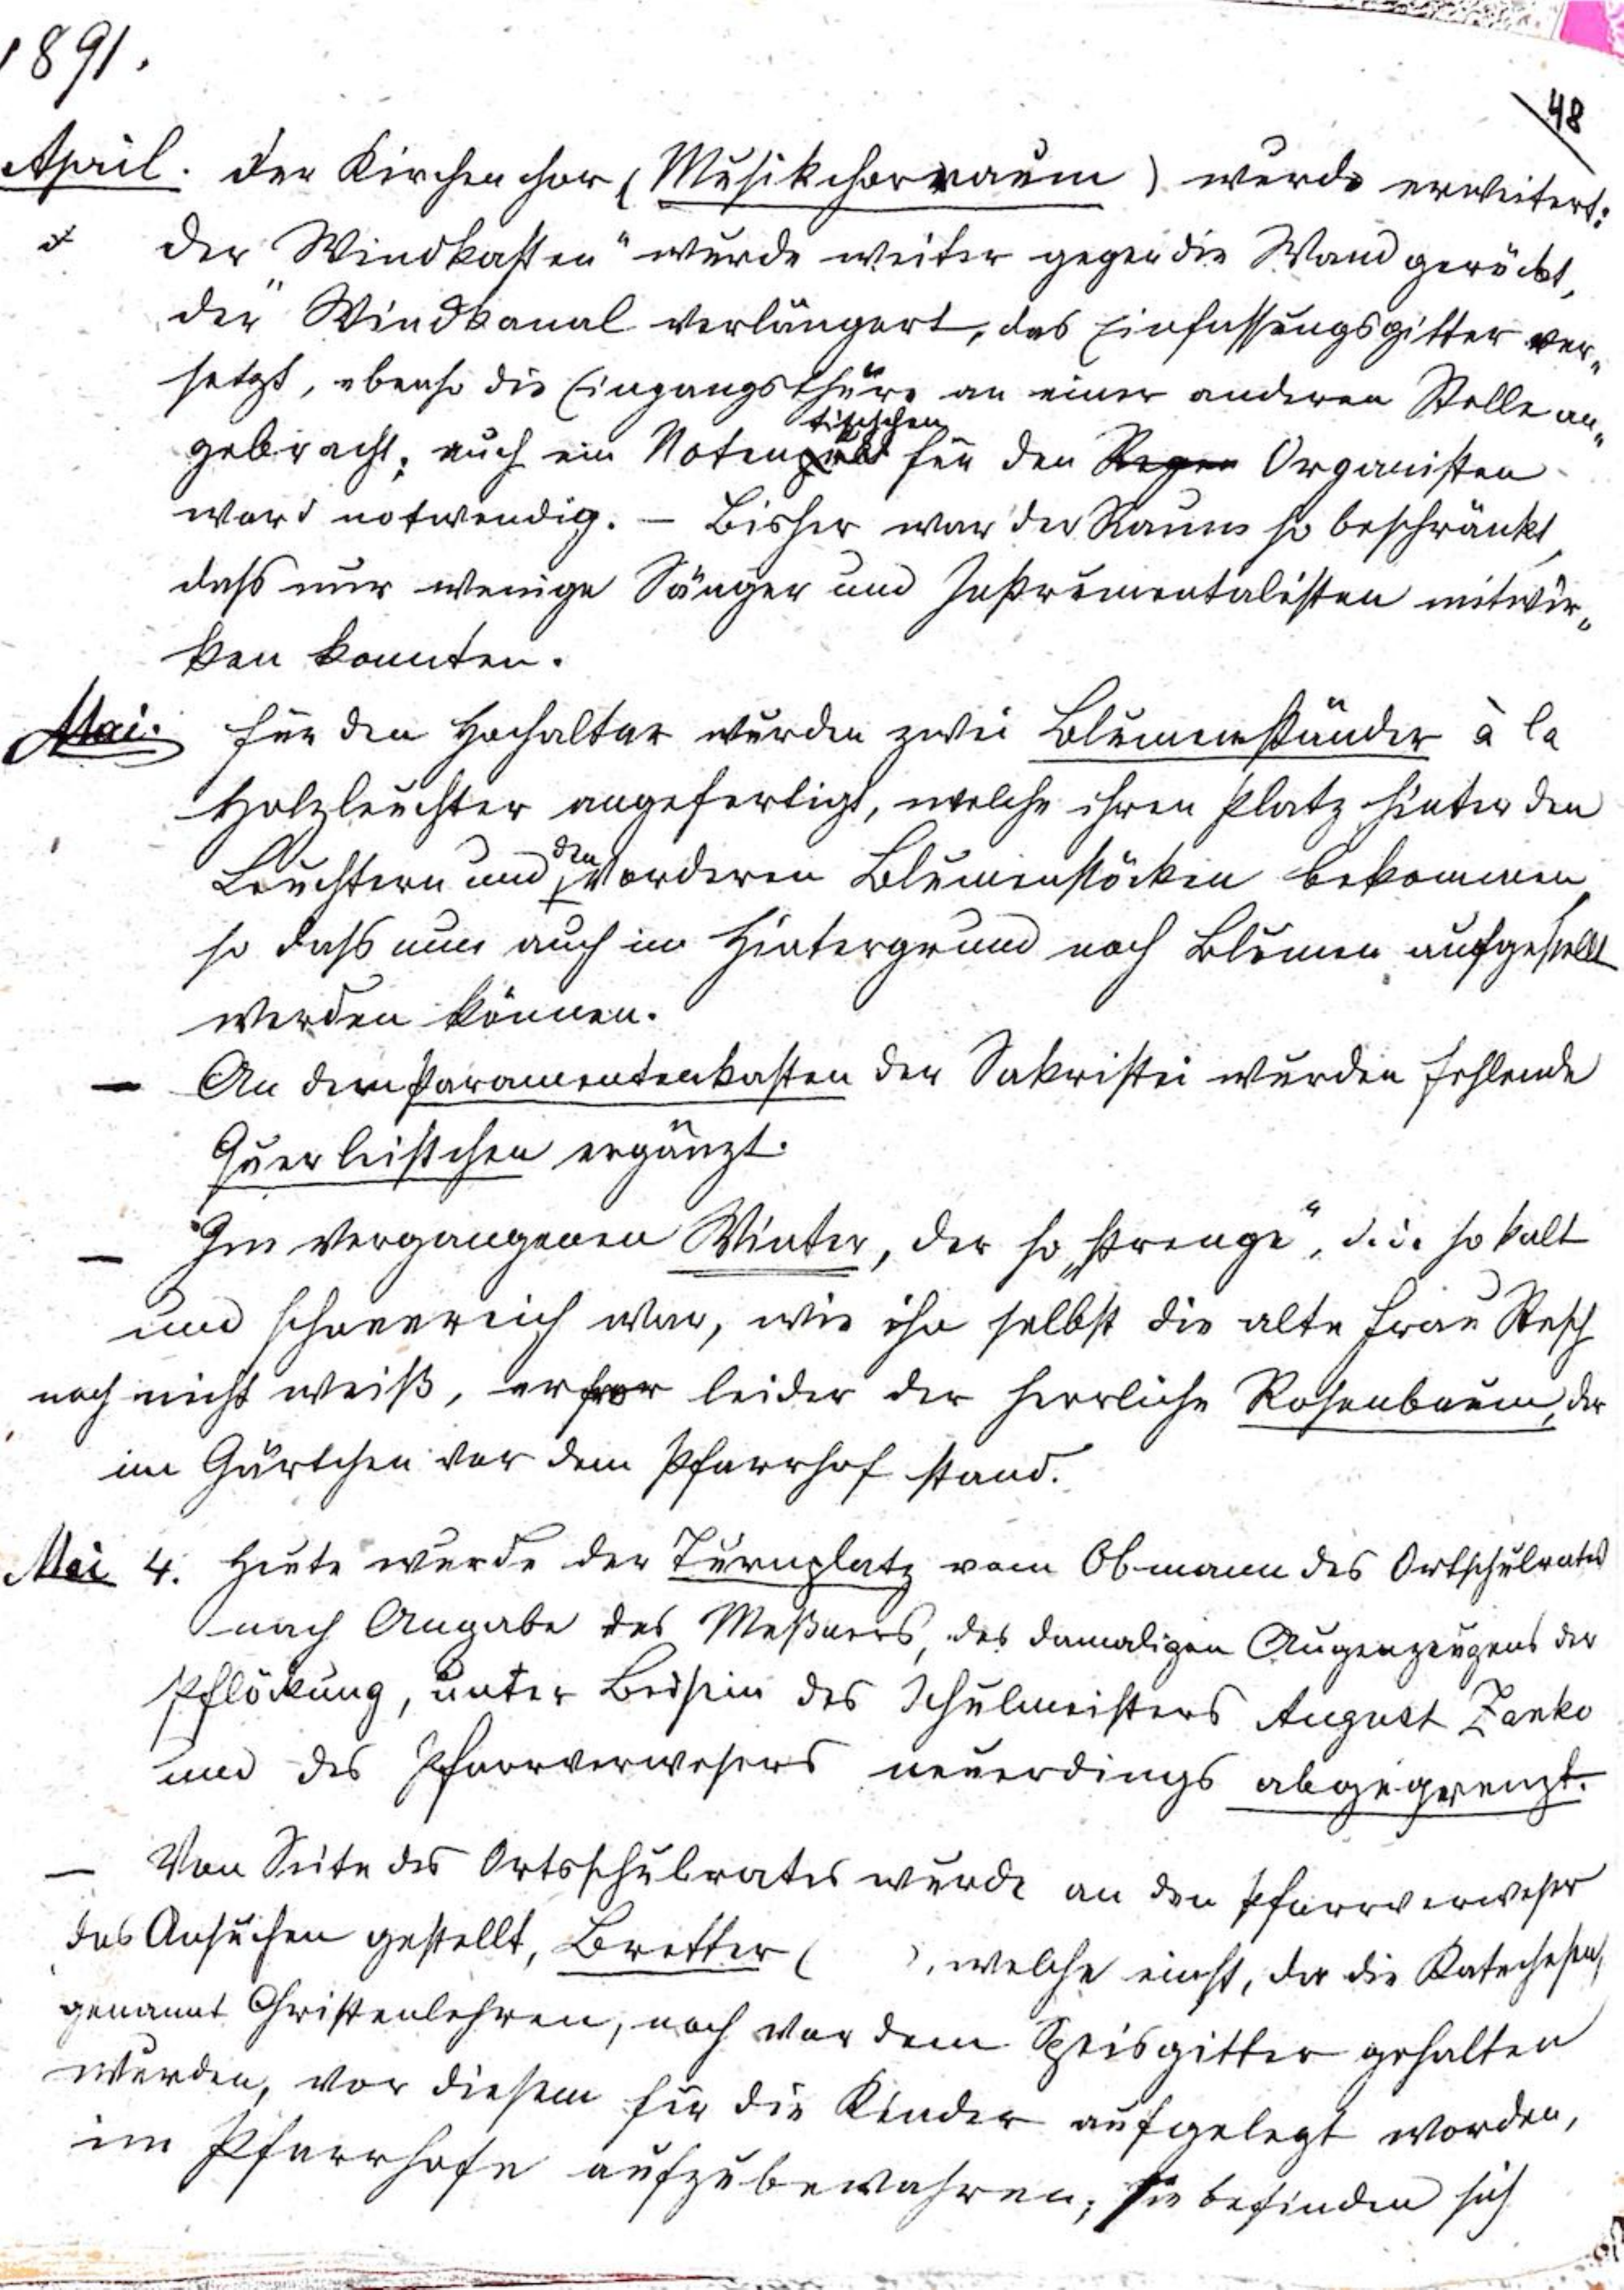 1891.
48
April. Der Kirchenchor (Musikchorraum) wurde erweitert:
der "Windkasten" wurde weiter gegen die Wand gerückt,
der "Windkanal verlängert, das Einfassungsgitter ver„
setzt, ebenso die Eingangsthüre an einer anderen Stelle an„
tischchen
gebracht; auch ein Notenpult für den Regen Organisten
ward notwendig. – Bisher war der Raum so beschränkt,
dass nur wenige Sänger und Instrumentalisten mitwir„
ken konnten.
Mai. Für den Hochaltar wurden zwei Blumenständer à la
Holzleuchter angefertigt, welche ihren Platz hinter den
den
Leuchtern und vorderen Blumenstöcken bekommen,
so dass nun auch im Hintergrund noch Blumen aufgestellt
werden können.
– An dem Paramentenkasten der Sakristei wurden fehlende
Querleistchen ergänzt.
– Im vergangenen Winter, der so „strenge“, d. i. so kalt
und schneereich war, wie ihn selbst die alte Frau Resch
noch nicht weiß, erfror leider der herrliche Rosenbaum, der
im Gärtchen vor dem Pfarrhof stand.
Mai 4. Heute wurde der Turnplatz vom Obmann des Ortschulrates
nach Angabe des Meßners, des damaligen Augenzeugens der
Pflöckung, unter Beisein des Schulmeisters August Zanko
und des Pfarrverwesers neuerdings abgegrenzt.
– Von Seite des Ortsschulrates wurde an den Pfarrverweser
das Ansuchen gestellt, Bretter ( ), welche einst, da die Katechesen,
genannt Christenlehren, noch vor dem Speisgitter gehalten
wurden, vor diesem für die Kinder aufgelegt worden,
im Pfarrhofe aufzubewahren; sie befinden sich